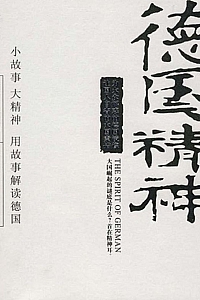 德国精神
THE SPIRIT OF GERMAN
大国崛起的谜底是什么?首在精神耳
小故事 大精神 用故事解读德国